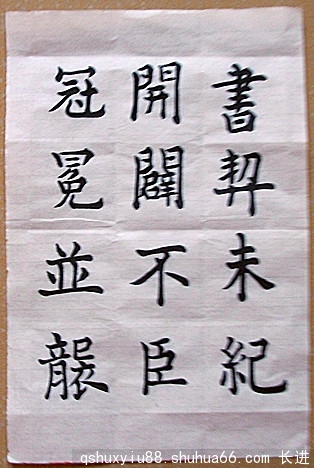 書契未紀
開闢不臣
冠冕並襲
qshuxyiu88 shuhua66.com 长进